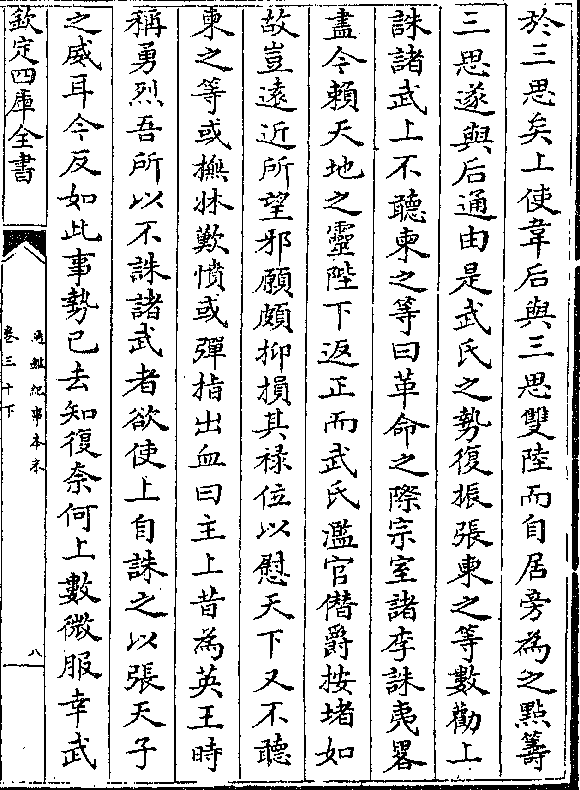 於三思矣上使韋后與三思雙陸而自居旁為之㸃籌
三思遂與后通由是武氏之勢復振張柬之等數勸上
誅諸武上不聽柬之等曰革命之際宗室諸李誅夷畧
盡今賴天地之靈陛下返正而武氏濫官僭爵按堵如
故豈遠近所望邪願頗抑損其禄位以慰天下又不聽
柬之等或撫牀歎憤或彈指出血曰主上昔為英王時
稱勇烈吾所以不誅諸武者欲使上自誅之以張天子
之威耳今反如此事勢已去知復奈何上數微服幸武
欽定四庫全書
通鑑紀事本末
卷三十下
八